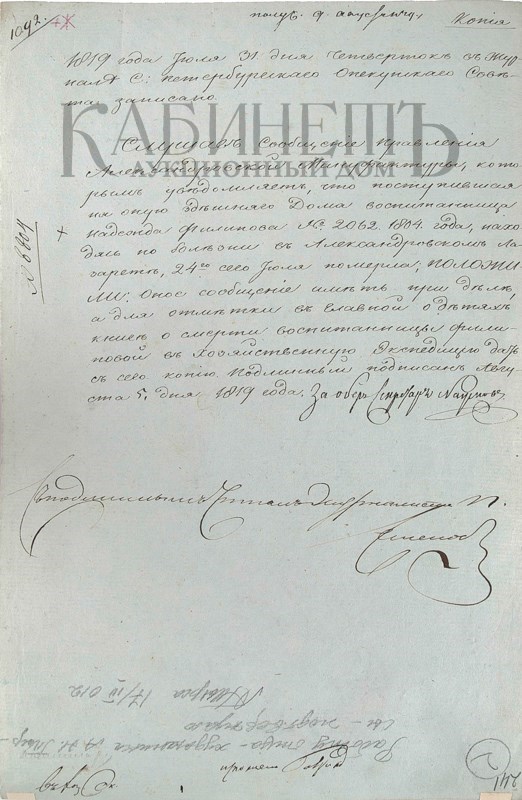 1092.
получ. 9. августа 1819.
Копія
1819 года Іюля 31 дня Четвертокъ въ Жур-
налѣ С: Петербургскаго Опекунскаго Совѣ-
та записано.
КАБИНЕТЪ
АУКЦИОННЫЙ ДОМ
Слушавъ Сообщеніе Правленія
Александровской Мануфактуры, кото-
рымъ увѣдомляетъ, что поступившая
на оную здѣшняго Дома воспитанница
Надежда Филипова №. 2062. 1804. года, нахо-
дясь по болѣзни въ Александровскомъ Ла-
заретѣ, 24го сего Іюля померла, ПОЛОЖИ-
ЛИ: Оное сообщеніе имѣть при дѣлѣ,
а для отмѣтки въ главной о дѣтяхъ
книгѣ о смерти воспитанницы Фили-
повой въ Хозяйственную Экспедицію дать
съ сего копію. Подлинный подписанъ Авгу-
ста 5. дня 1819 года. За оберъ Секретаря
Съ подлиннымъ Читалъ
17/IV 012
Работу отца - художника
подтверждаю
2